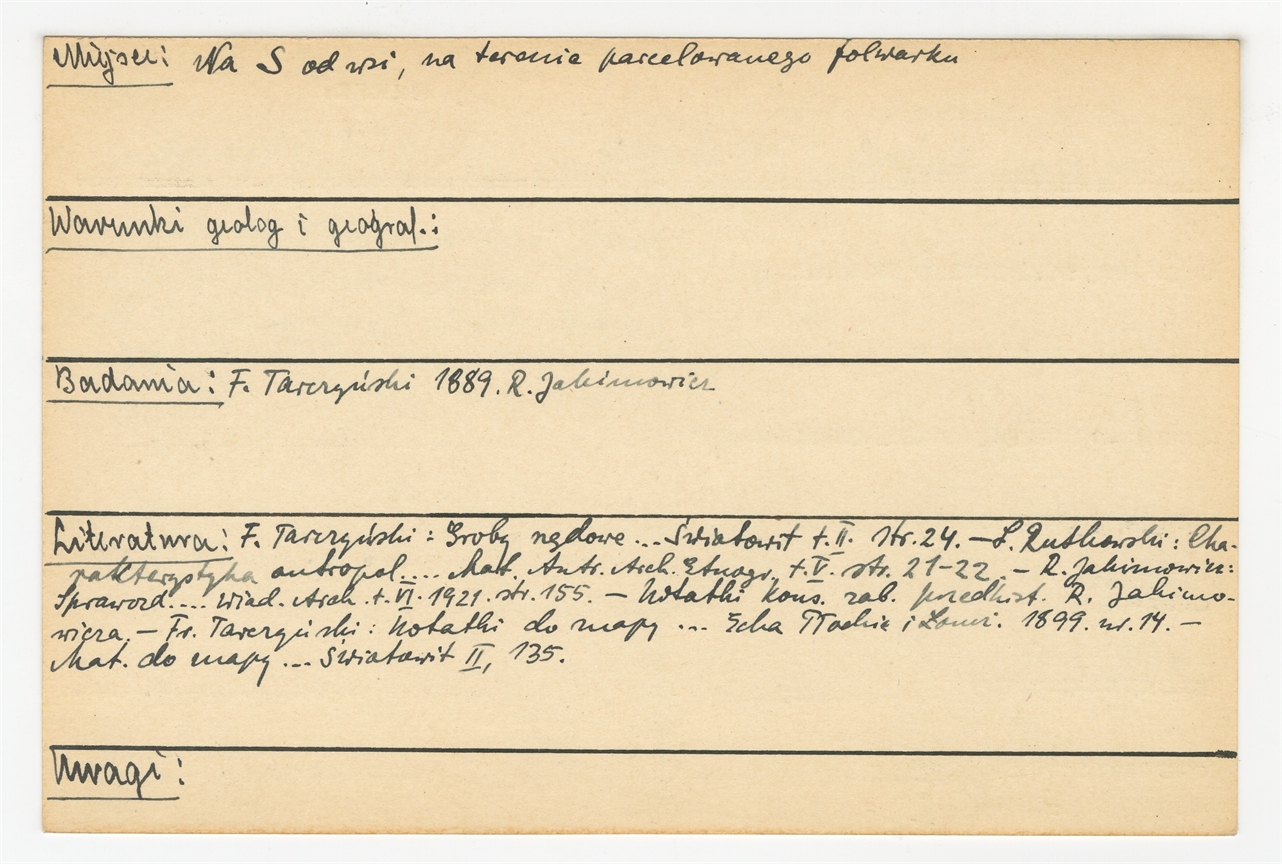 Miejsce: Na S od wsi, na terenie parcelowanego folwarku
Warunki geolog i geograf.:
Badania: F. Tarczyński 1889. R. Jakimowicz
Literatura: F. Tarczyński: Groby rzędowe... Światowit t. II. str. 24. – L. Rutkowski: Cha-
rakterystyka antropol.... Mat. Antr. Arch. Etnogr. t. V. str. 21-22. – R. Jakimowicz:
Sprawozd.... Wiad. Arch. t. VI. 1921. str. 155. – Notatki kons. zab. przedhist. R. Jakimo-
wicza. – Fr. Tarczyński: Notatki do mapy ... Echa Płockie i Łomż. 1899. nr. 14. –
Mat. do mapy ... Światowit II, 135.
Uwagi: